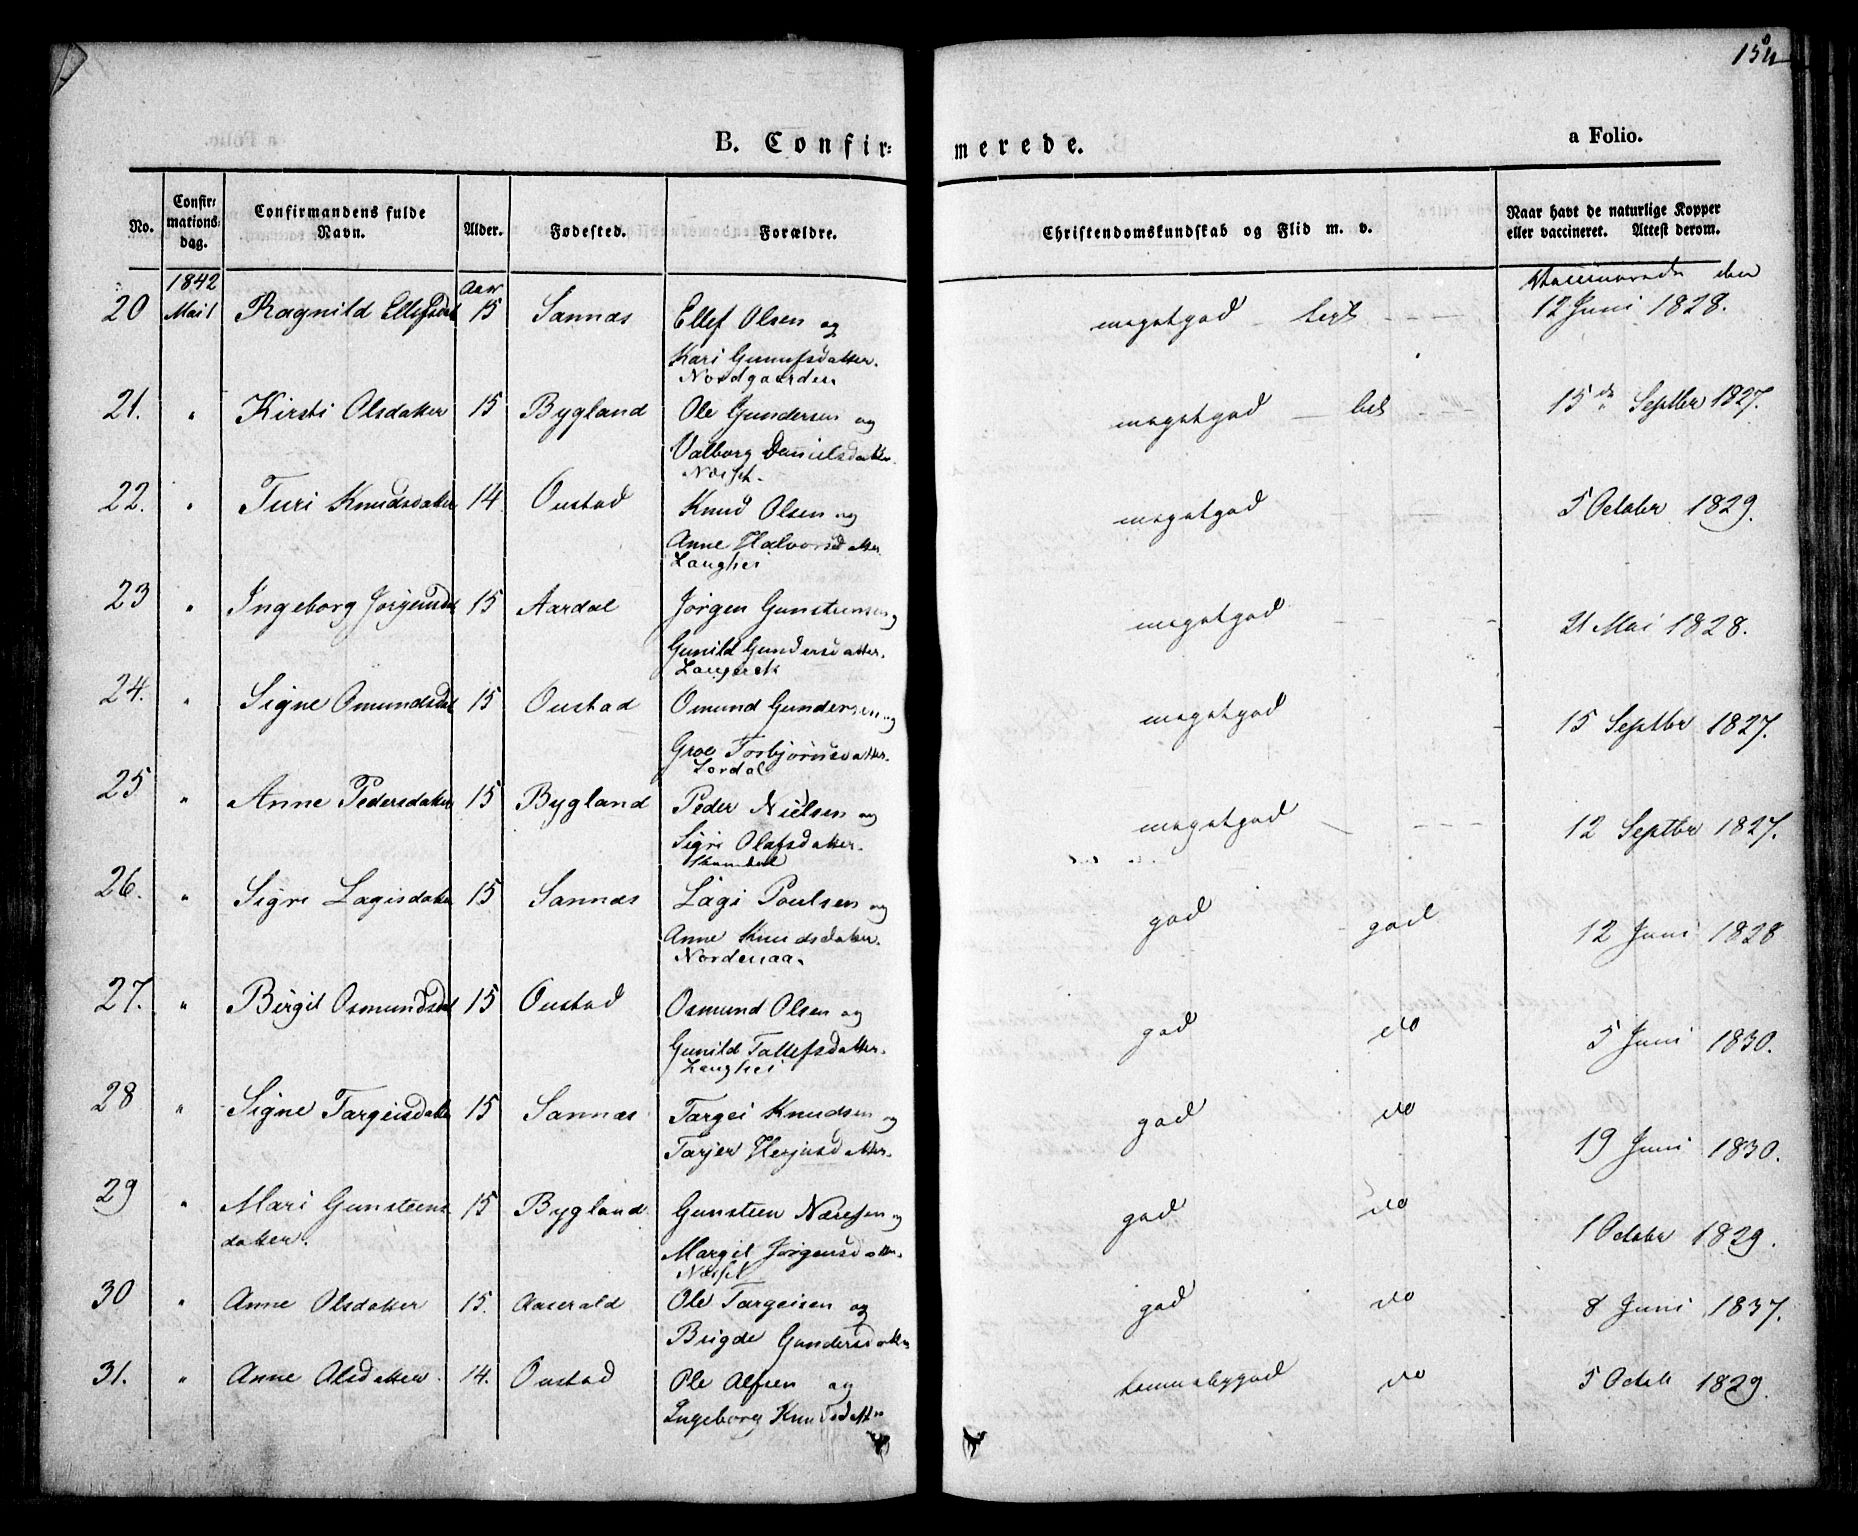 154
B. Confirmerede.
a Folio.
No.
Confirmations-dag.
Confirmandens fulde Navn.
Alder.
Fødested.
Forældre.
Christendomskundskab og Flid m. v.
Naar havt de naturlige Kopper eller vaccineret. Attest derom.
1842
Aar
Vaccinerede den
20 Mai 1 Ragnild Ellefsdat 15 Sannæs Ellef Olsen og megetgod 12 Juni 1828.
Kari Gunnufsdatter.
Nordgaarden
21. " Kirsti Olsdatter 15 Bygland Ole Gundersen og megetgod 15 de Septbr 1827.
Valborg Danielsdatter
Næsset.
22. " Turi Knudsdatter 14 Oustad Knud Olsen og megetgod 5 Octobr 1829.
Anne Halvorsdatter
Langhei
23 " Ingeborg Jørgensdat 15 Aardal Jørgen Gunsteinsen og megetgod 21 Mai 1828.
Gunild Gundersdatter.
24. " Signe Omundsdat 15 Oustad Omund Gundersen og megetgod 15 Septbr 1827.
Groe Torbjørnsdatter.
Lordal
25 " Anne Pedersdatter 15 Bygland Peder Nielsen og megetgod 12 Septbr 1827.
Sigri Olafsdatter.
26. " Sigri Lagisdatter 15 Sannæs Lagi Poulsen og god god 12 Juni 1828
Anne Knudsdatter.
Nordenaa.
27. " Birgit Osmundsdat 15 Oustad Osmund Olsen og god do 5 Juni 1830.
Gunild Tallefsdatter.
Langhei
28 " Signe Targeisdatter 15 Sannæs Targei Knudsen og god do 19 Juni 1830.
Tarjer Herjusdatter.
29 " Mari Gunsteens 15 Bygland. Gunsteen Næresen og god do 1 Octobr 1829.
datter. Margit Jørgensdatter.
Næsset
30 " Anne Olsdatter 15. Aaserald Ole Targeisen og god do 8 Juni 1837.
Brigde Gundersdatter
31. " Anne Olsdatter. 14. Oustad Ole Alfsen og temmeliggod do 5 Octob 1829.
Ingeborg Knudsdatter